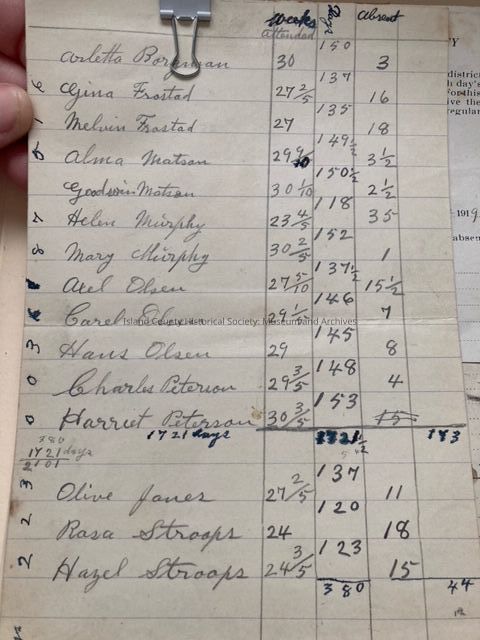 Weeks Days Absent
Attended
Arletta Borgman 30 150 3
6 Gina Frostad 27 2/5 137 16
1 Melvin Frostad 27 135 18
5 Alma Matson 29 9/10 149 1/2 3 1/2
Goodwin Matson 30 1/10 150 1/2 2 1/2
7 Helen Murphy 23 4/5 118 35
8 Mary Murphy 30 2/5 152 1
Axel Olsen 27 5/10 137 1/2 15 1/2
Carel Olsen 29 1/5 146 7
Island County Historical Society: Museum and Archives
3 Hans Olsen 29 145 8
0 Charles Peterson 29 3/5 148 4
0 Harriet Peterson 30 3/5 153 15
1721 days 1721 1/2 193
380
1721 days
2101
3 Olive Jones 27 2/5 137 11
2 Rosa Stroops 24 120 18
2 Hazel Stroops 24 3/5 123 15
380 44
Y
district
h day's
For this
ive the
regular
1919
absen